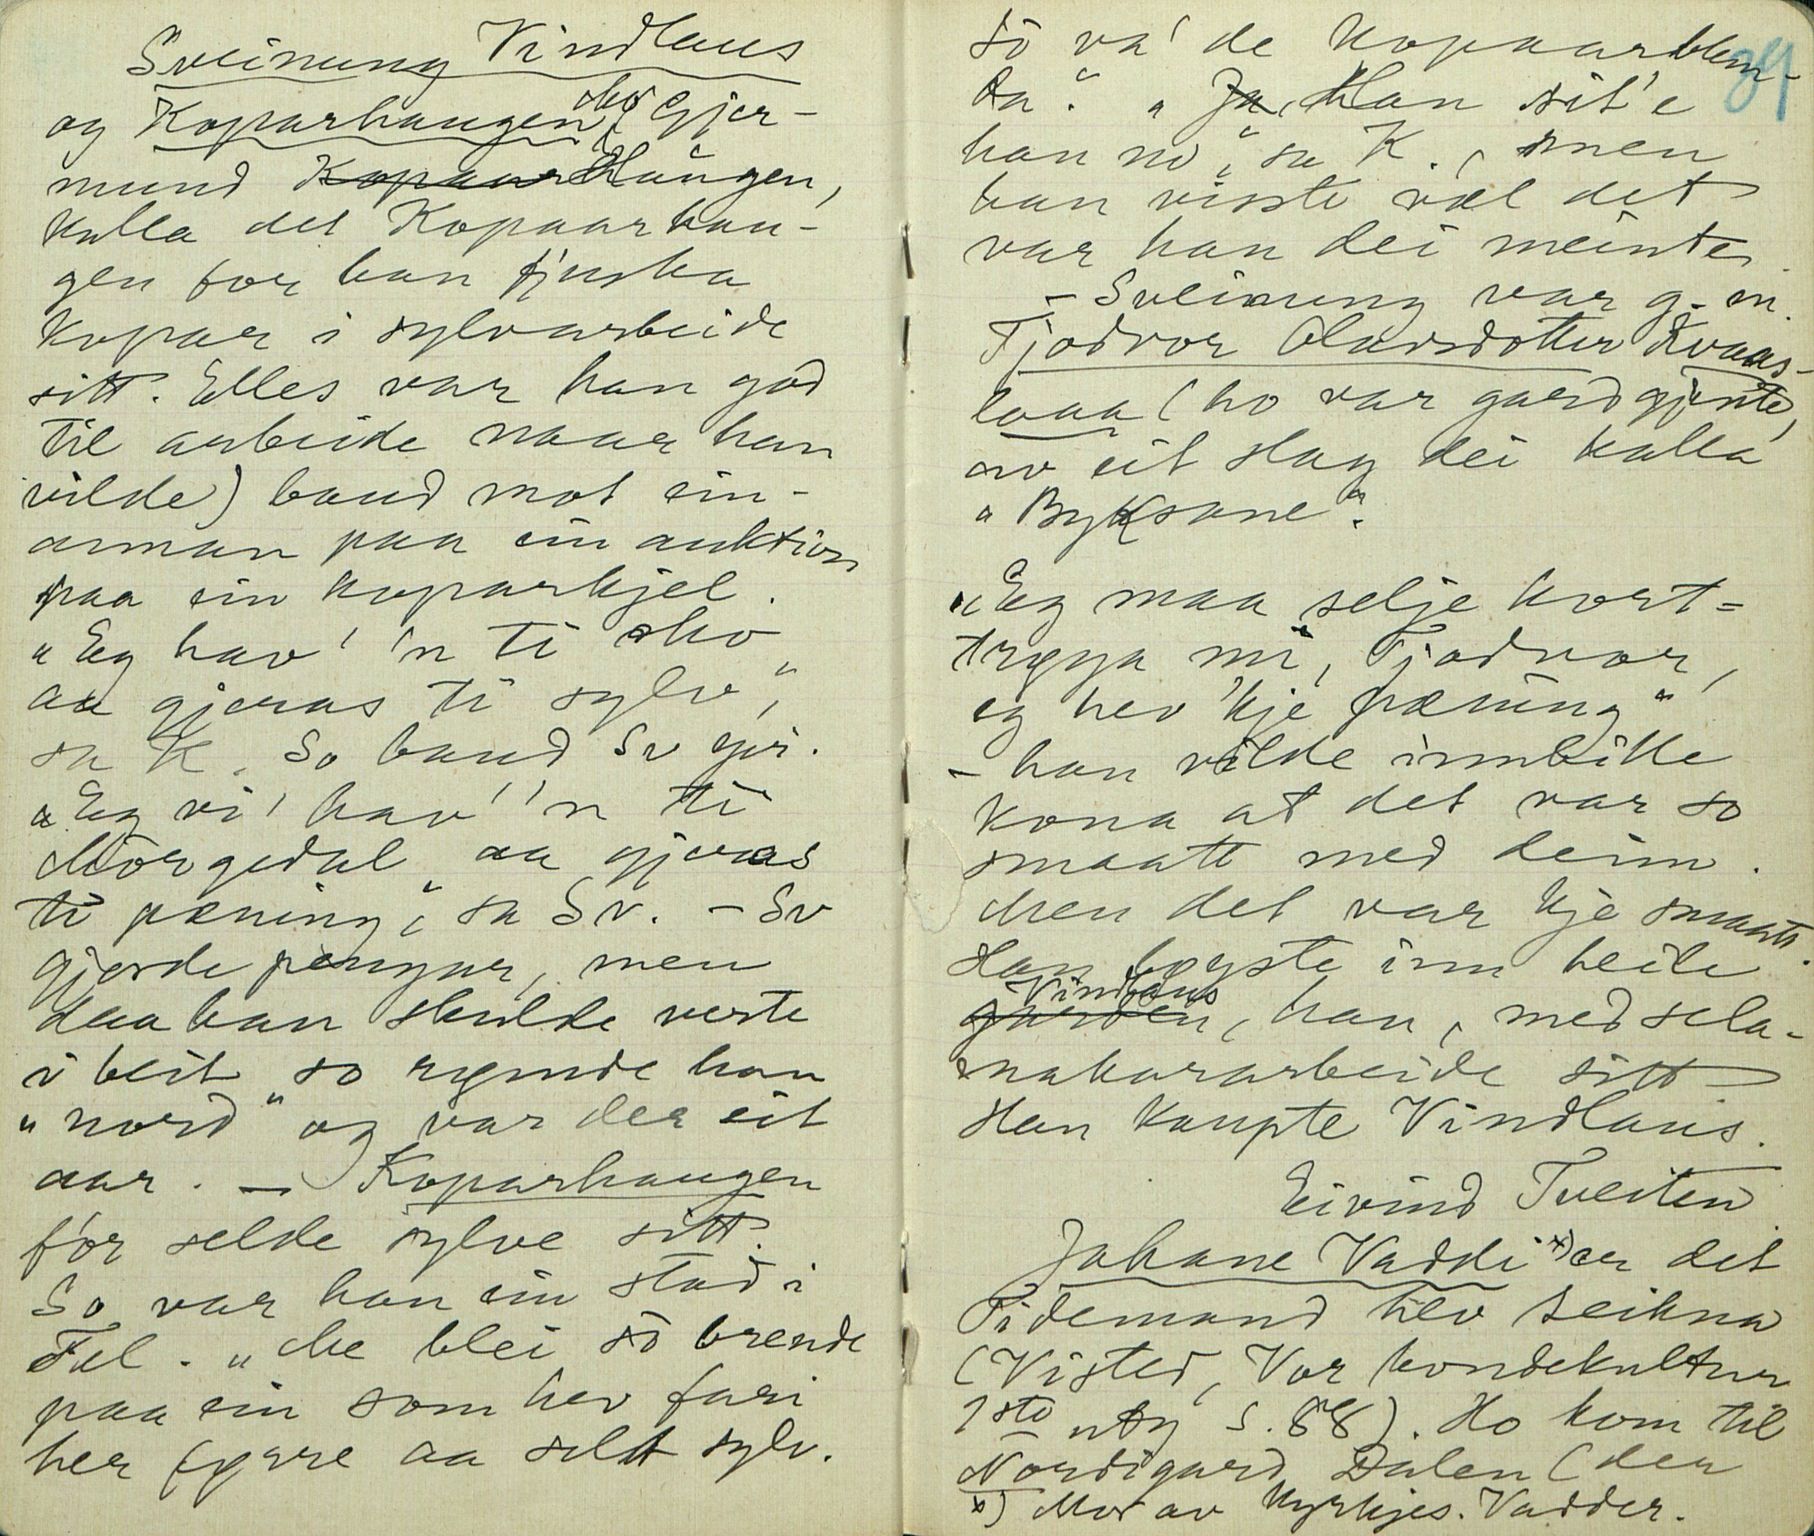 Sveinung Vindlaus
og Koparhaugen (Gjer-
mund Kopaar Haugen,
kalla det Kopaarhau-
gen for han fuska
kopar i sylvarbeide
sitt. Elles var han god
til arbeide naar han
vilde) baud mot ein-
annan paa ein auktion
paa ein koparkjel.
"Eg hav' 'n ti
aa gjeras ti sylv",
sa K. So baud Sv yvi.
"Eg vi' hav' 'n ti
Morgedal aa gjeras
ti pæning", sa Sv. – Sv
gjorde pengar, men
daa han skulde verte
i beit so rymde han
"nord" og var der eit
aar. – Koparhaugen
fór selde sylve sitt.
So var han ein stad i
Tel. "Me blei so brende
paa ein som hev fari
her fyrre aa selt sylv.
39
So va' de Kopaarblem-
da." "Ja, Han sit'e
han no", sa K., men
han visste væl det
var han dei meinte.
– Sveinung var g. m.
Tjodvor Olavsdotter Kvaas-
loaa (ho var gardgjente,
av eit slag dei kalla
"Byksane".
"Eg maa selje kort-
trøya mi, Tjodvor,
eg hev 'kje pæning"
– han vilde innbille
kona at det var so
smaatt med deim.
Men det var kje smaatt.
Han løyste inn heile
Vindlaus
garden, han, med sela-
makararbeide sitt
Han kaupte Vindlaus.
Eivind Tveiten
Johane Vaddi x) er det
Tidemand hev teikna
(Visted, Vor bondekultur
1ste utg s. 88). Ho kom til
Nordigard Dalen (der
x) Mor av kyrkjes. Vadder.